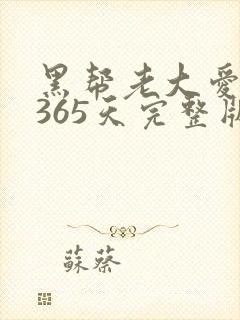 黑帮老大爱
365天完整版
蘇蔡